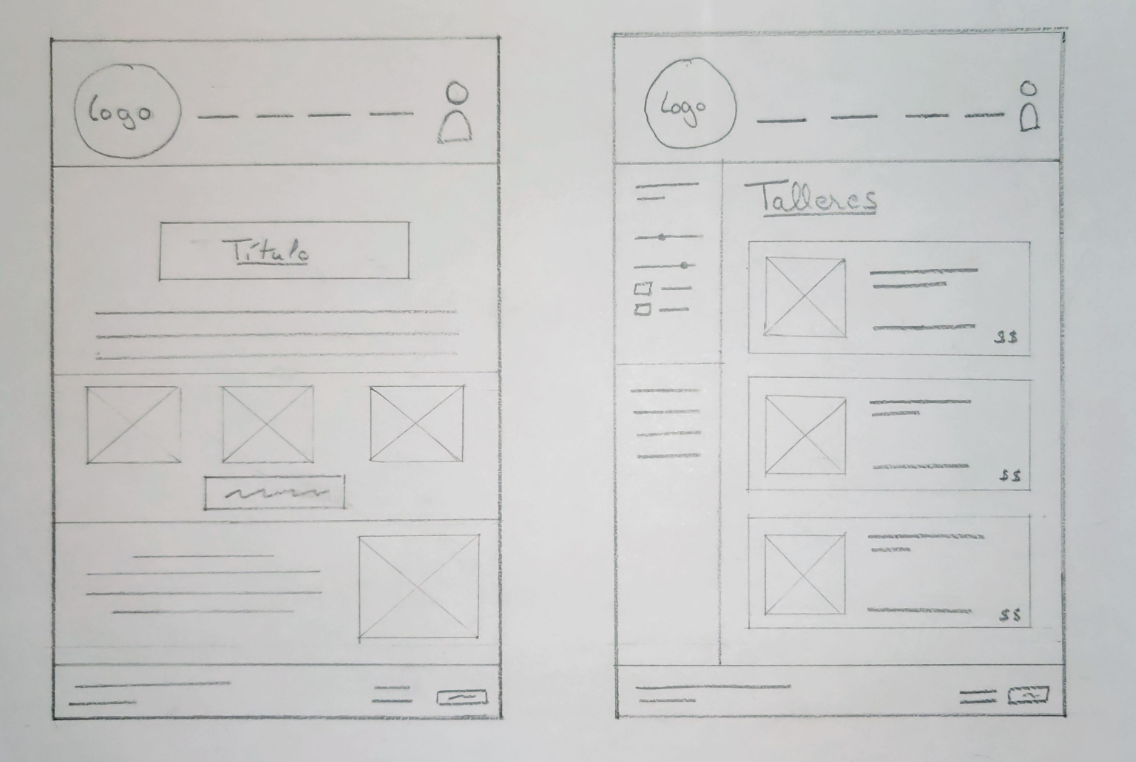 Logo
Título
Logo
Talleres
$$
$$
$$